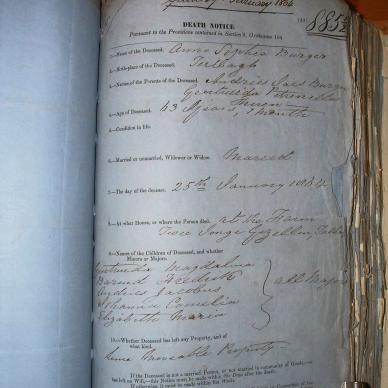 January February 1864
8854
DEATH NOTICE
Pursuant to the Provisions contained in Section 9, Ordinance 104
1.—Name of the Deceased, Anna Sophia Burger
2.—Birth-place of the Deceased,
3.—Names of the Parents of the Deceased, Andries Burger
Gertruida Petronella
4.—Age of Deceased, 43 Years, 1 month
5.—Condition in life.
6.—Married or unmarried, Widower or Widow. Married
7.—The day of the decease, 25th January 1864
8.—At what House, or where the Person died. at the Farm
Twee Jonge Gezellen,
9.—Names of the Children of Deceased, and whether
Minors or Majors.
Gertruida Magdalena
Barend Fredrik
Andries Jacobus
Johanna Cornelia
Elizabeth Maria
all Majors
10.—Whether Deceased has left any Property, and of
what kind.
Some Moveable Property
If the Deceased is not a married Person, or not married in community of Goods—or
has left no Will,—this Notice must be made within
If otherwise, it must be made within Six Weeks.